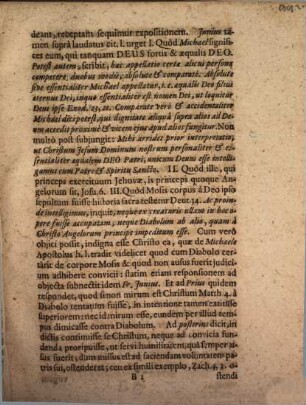 deant, receptam sequimur expositionem. Junius ta-
men suprà laudatus cit. l. urget I. Quòd Michael signifi-
cet eum, qui tanquam DEUS fortis & æqualis DEO.
Potest autem, scribit, hæc appellatio certè alicui personæ
competere, duobus modis, absolutè & comparatè. Absolutè
sive essentialiter Michael appellatur, i. e. æqualis Deo filius
æternus Dei, inque essentialiter est nomen Dei, ut loquitur
Deus ipse Exod. 23, 21. Comparatè verò & accidentaliter
Michael dici potest, qui dignitate aliquâ supra alios ad De-
um accedit proximè & vicem ejus apud alios fungitur. Non
multò pòst subjungit: Mihi arridet prior interpretatio,
ut Christum Jesum Dominum nostrum personaliter & es-
sentialiter æqualem DEO Patri, unicum Deum esse intelli-
gamus cum Patre & Spiritu Sancto. II. Quòd ille, qui
princeps exercituum Jehovæ, is princeps quoque An-
gelorum sit, Jos. 6. III. Quòd Mosis corpus à Deo ipso
sepultum fuisse historia sacra testetur Deut. 34. Ac proin-
de intelligimus, inquit, neque ex creaturis ullum in hoc o-
pere fuisse occupatum, neque Diabolum ab alio, quam à
Christo Angelorum principe impeditum esse. Cum verò
objici possit, indigna esse Christo ea, quæ de Michaele
Apostolus h. l. tradit videlicet quod cum Diabolo cer-
târit de corpore Mosis & quod non ausus fuerit judici-
um adhibere convicii: statim etiam responsionem ad
objecta subnectit idem Fr. Junius. Et ad Prius quidem
respondet, quod non sit mirum est Christum Matth. 4. à
Diabolo tentatum fuisse, in intentione tamen carnis suæ
superiorem: nec id mirum esse, eundem per illud tem-
pus dimicasse contra Diabolum. Ad posterius dicit, in
dictis continuisse se Christum, neque ad convicia fun-
denda proripuisse, ut servi humiliarent; quâ semper u-
sus fuerit, dum missus est ad faciendam voluntatem pa-
tris sui, ostenderet; ceu ex simili exemplo, Zach. 3, 1. o-
B 2 stendi